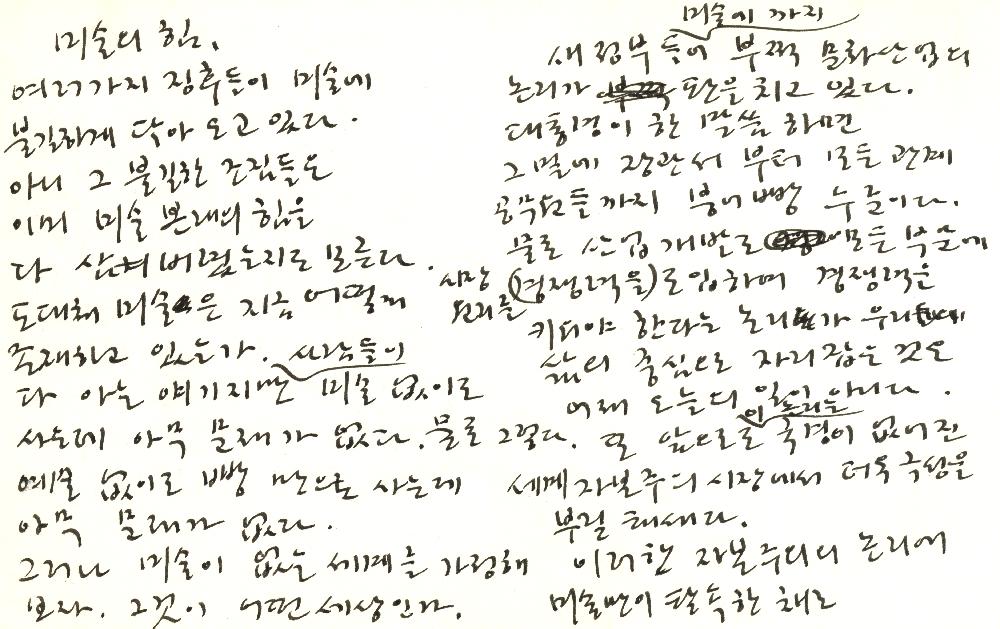 미술의 힘.
여러가지 징후들이 미술에
불길하게 닥아 오고 있다.
아니 그 불길한 조짐들은
이미 미술 본래의 힘을
다 삼켜버렸는지도 모른다.
도대체 미술은 지금 어떻게
존재하고 있는가. 사람들이
다 아는 얘기지만 미술 없이도
사는데 아무 문제가 없다. 물론 그렇다.
예술 없이도 빵 만으로 사는데
아무 문제가 없다.
그러나 미술이 없는 세계를 가정해
보자. 그것이 어떤 세상인가.
미술에 까지
새 정부 들어 부쩍 문화산업의
논리가 판을 치고 있다.
대통령이 한 말씀 하면
그 멀에 장관서 부터 모든 관계
공무원들까지 붕어빵 누들이다.
물론 산업개발로 모든 부문에
시장 원리를 (경쟁력을) 도입하며 경쟁력을
키워야 한다는 논리가 우리
삶의 중심으로 자리잡은 것은
어제 오늘의 일이 아니다.
또 앞으로도 이 논리는 국경이 없어진
세계 자본주의 시장에서 더욱 극성을
부릴 태세다.
이러한 자본주의의 논리에
미술만이 탈속한 채로